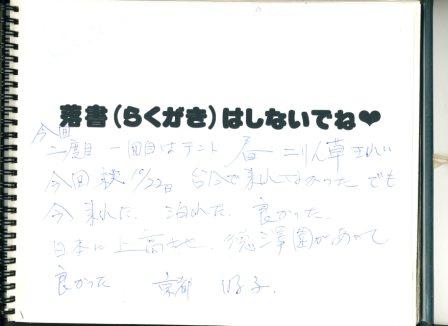 落書(らくがき)はしないでね♥
今回
二度目 一回目はテント 春 ニリン草きれい
今回 秋 10/22日 台風で来れなかった でも
今 来れた. 泊れた. 良かった.
日本に上高地. 徳澤園があって
良かった 京都